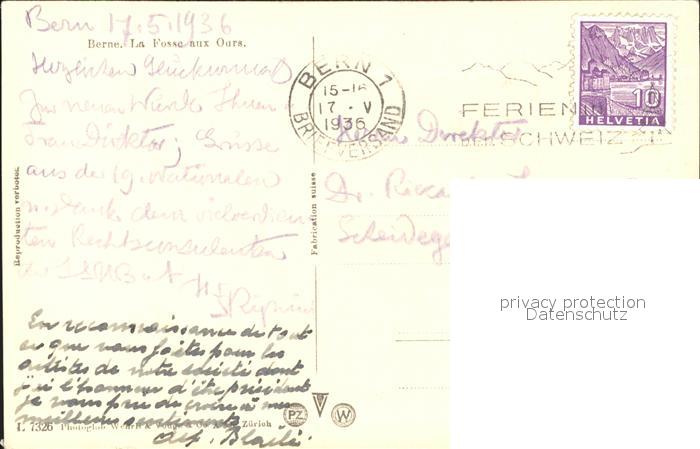 Bern 17.5.1936
Berne. La Fosse aux Ours.
Herzlichen Glückwunsch
Zur neuen Würde Ihnen
Frau Direktor; Grüsse
aus der 19. Nationalen
u. Dank dem verdien
ten Rechtsconsulenten
BERN 1
15-16
17.V
1936
BRIEFVERSAND
FERIEN IN
DER SCHWEIZ
10
HELVETIA
Herrn Direktor
Dr.
Scheideg
Reproduction verboten.
Fabrication suisse
En reconnaissance de tout
ce que vous faites pour les
artistes de notre société dont
j'ai l'honneur d'être président
je vous prie de croire à mes
meilleurs sentiments
privacy protection
Datenschutz
PZ
W
L 7326 Photoglob Wehrli & Vouga & Co Zürich